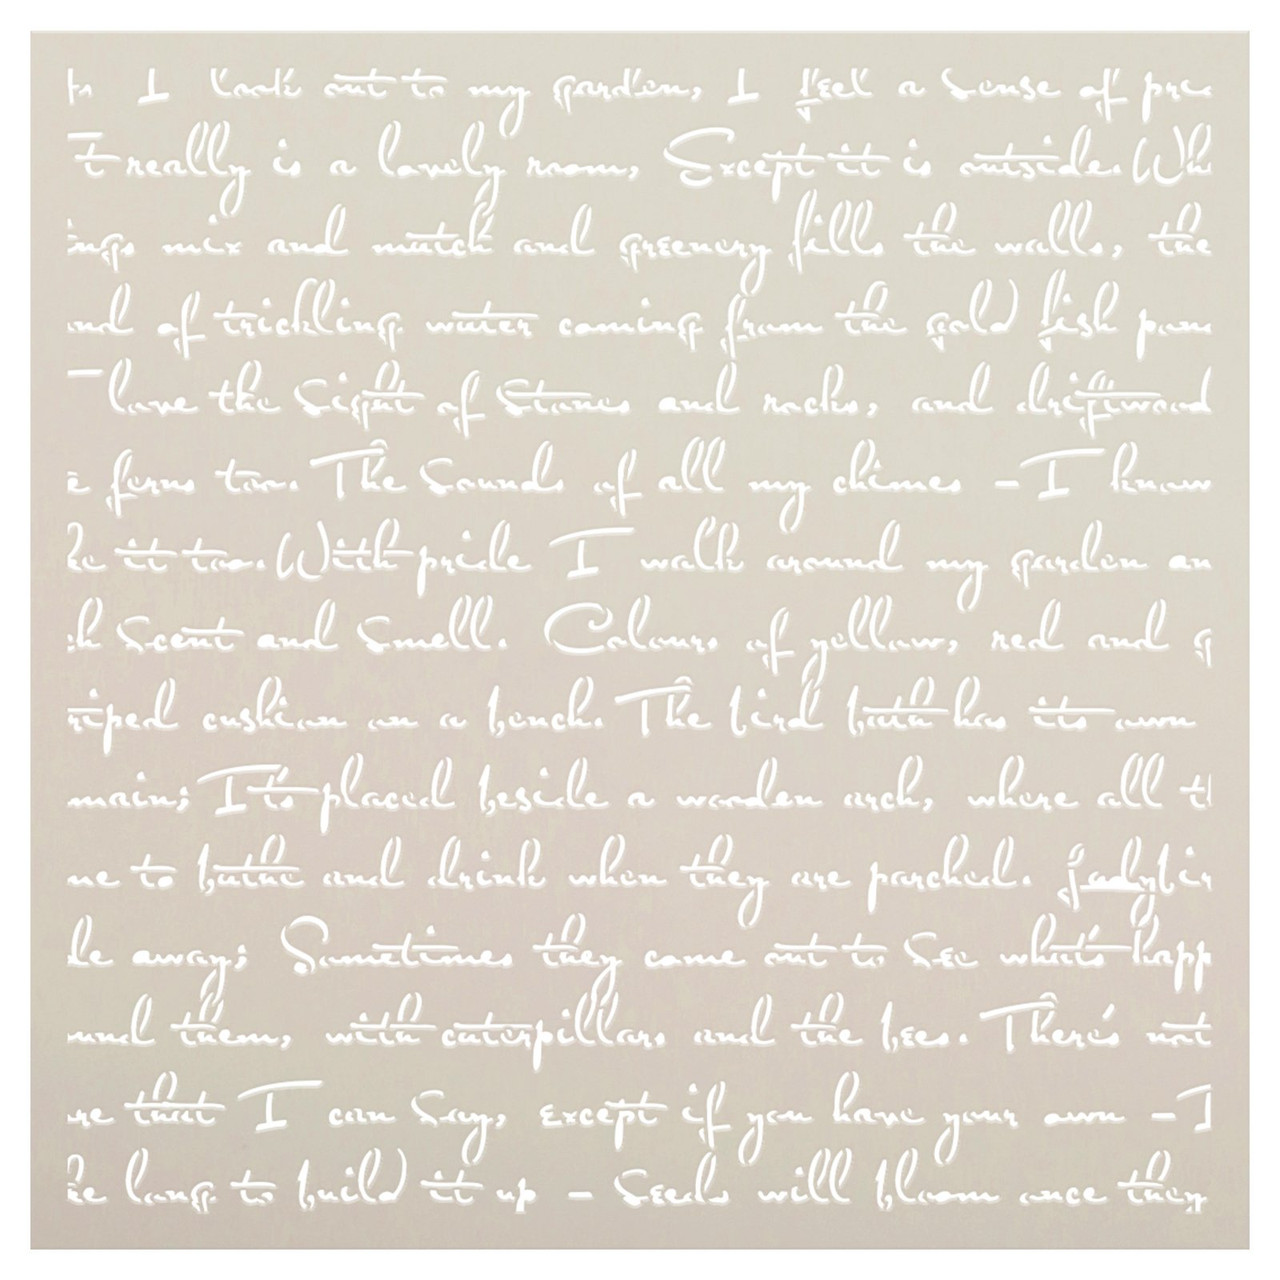 I look out to my garden, I feel a Sense of
really is a lovely room, Except it is outside.
mix and match and greenery fills the walls, the
of trickling water coming from the gold fish
love the Sight of Stones and rocks, and driftwood
ferns too. The Sounds of all my chimes - I know
it too. With pride I walk around my garden
Scent and Smell. Colours of yellow, red and
cushion on a bench. The bird bath has its own
I'ts placed beside a wooden arch, where all
to bathe and drink when they are parched.
away; Sometimes they came out to See what's
them, with caterpillars and the bees. There's not
that I can Say, except if you have your own - I
long to build it up - Seeds will bloom once they